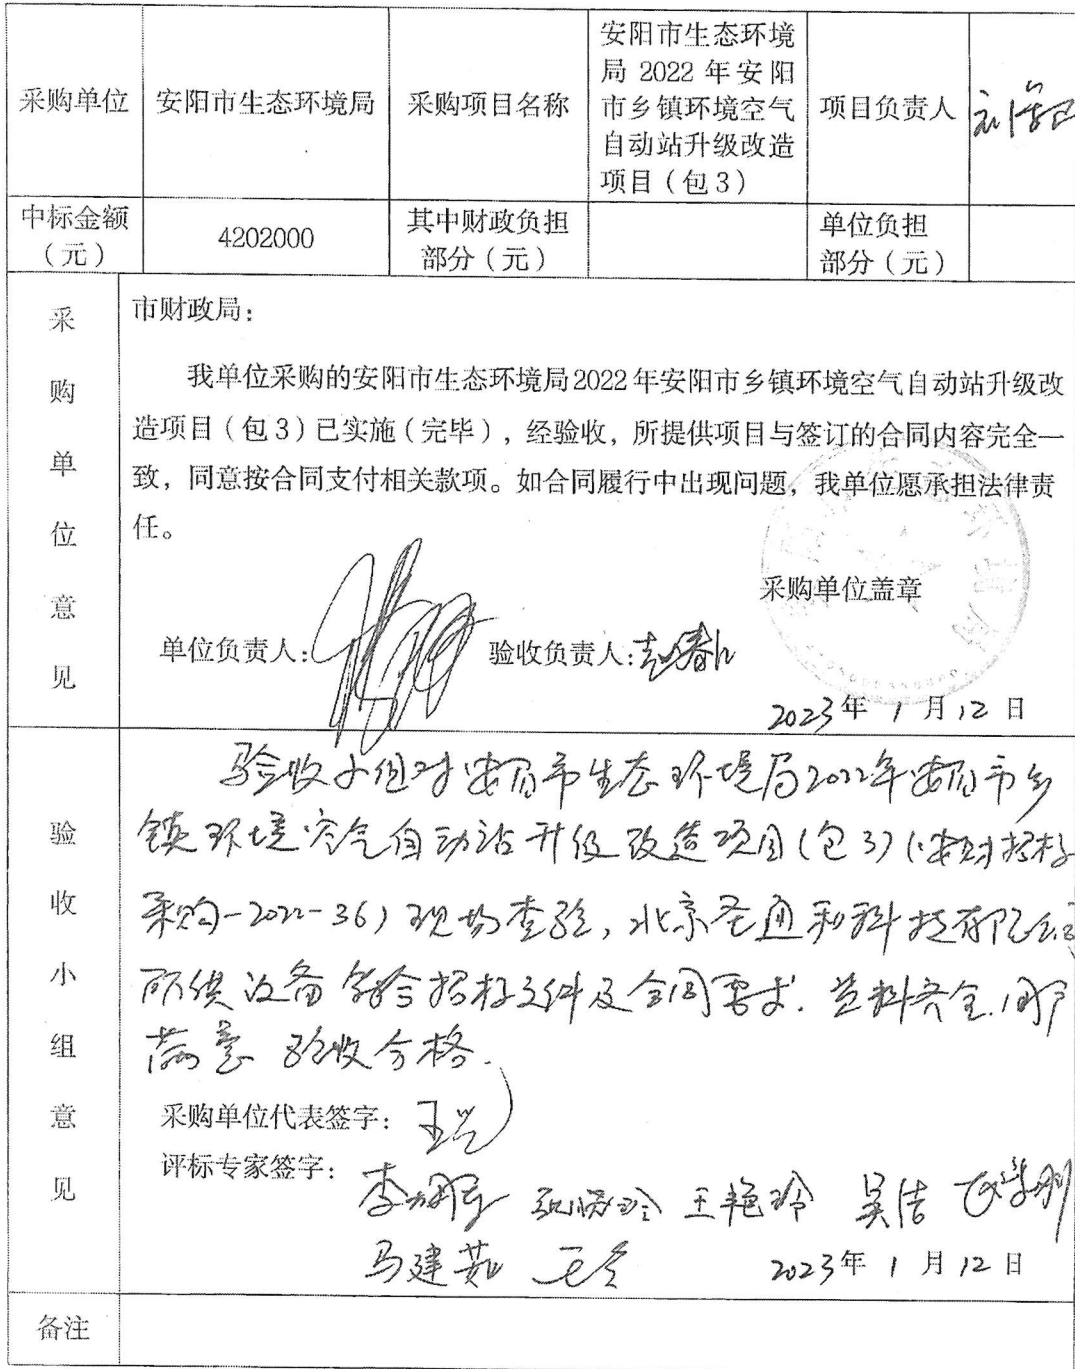 采购单位 安阳市生态环境局 采购项目名称 安阳市生态环境
局 2022 年安阳
市乡镇环境空气
自动站升级改造
项目（包3） 项目负责人
中标金额
（元） 4202000 其中财政负担
部分（元） 单位负担
部分（元）
采购单位意见
市财政局：
我单位采购的安阳市生态环境局2022年安阳市乡镇环境空气自动站升级改
造项目（包3）已实施（完毕），经验收，所提供项目与签订的合同内容完全一
致，同意按合同支付相关款项。如合同履行中出现问题，我单位愿承担法律责
任。
采购单位盖章
单位负责人： 验收负责人：
2023年 1 月 12 日
验收小组意见
验收小组对安阳市生态环境局2022年安阳市乡
镇环境空气自动站升级改造项目(包3)(安财招标
采购-2022-36)现场查验，北京圣通和科技有限公司
所供设备符合招标文件及合同要求.资料齐全.用户
满意 验收合格.
采购单位代表签字：
评标专家签字：
王艳玲 吴洁
马建茹
2023年 1 月 12 日
备注